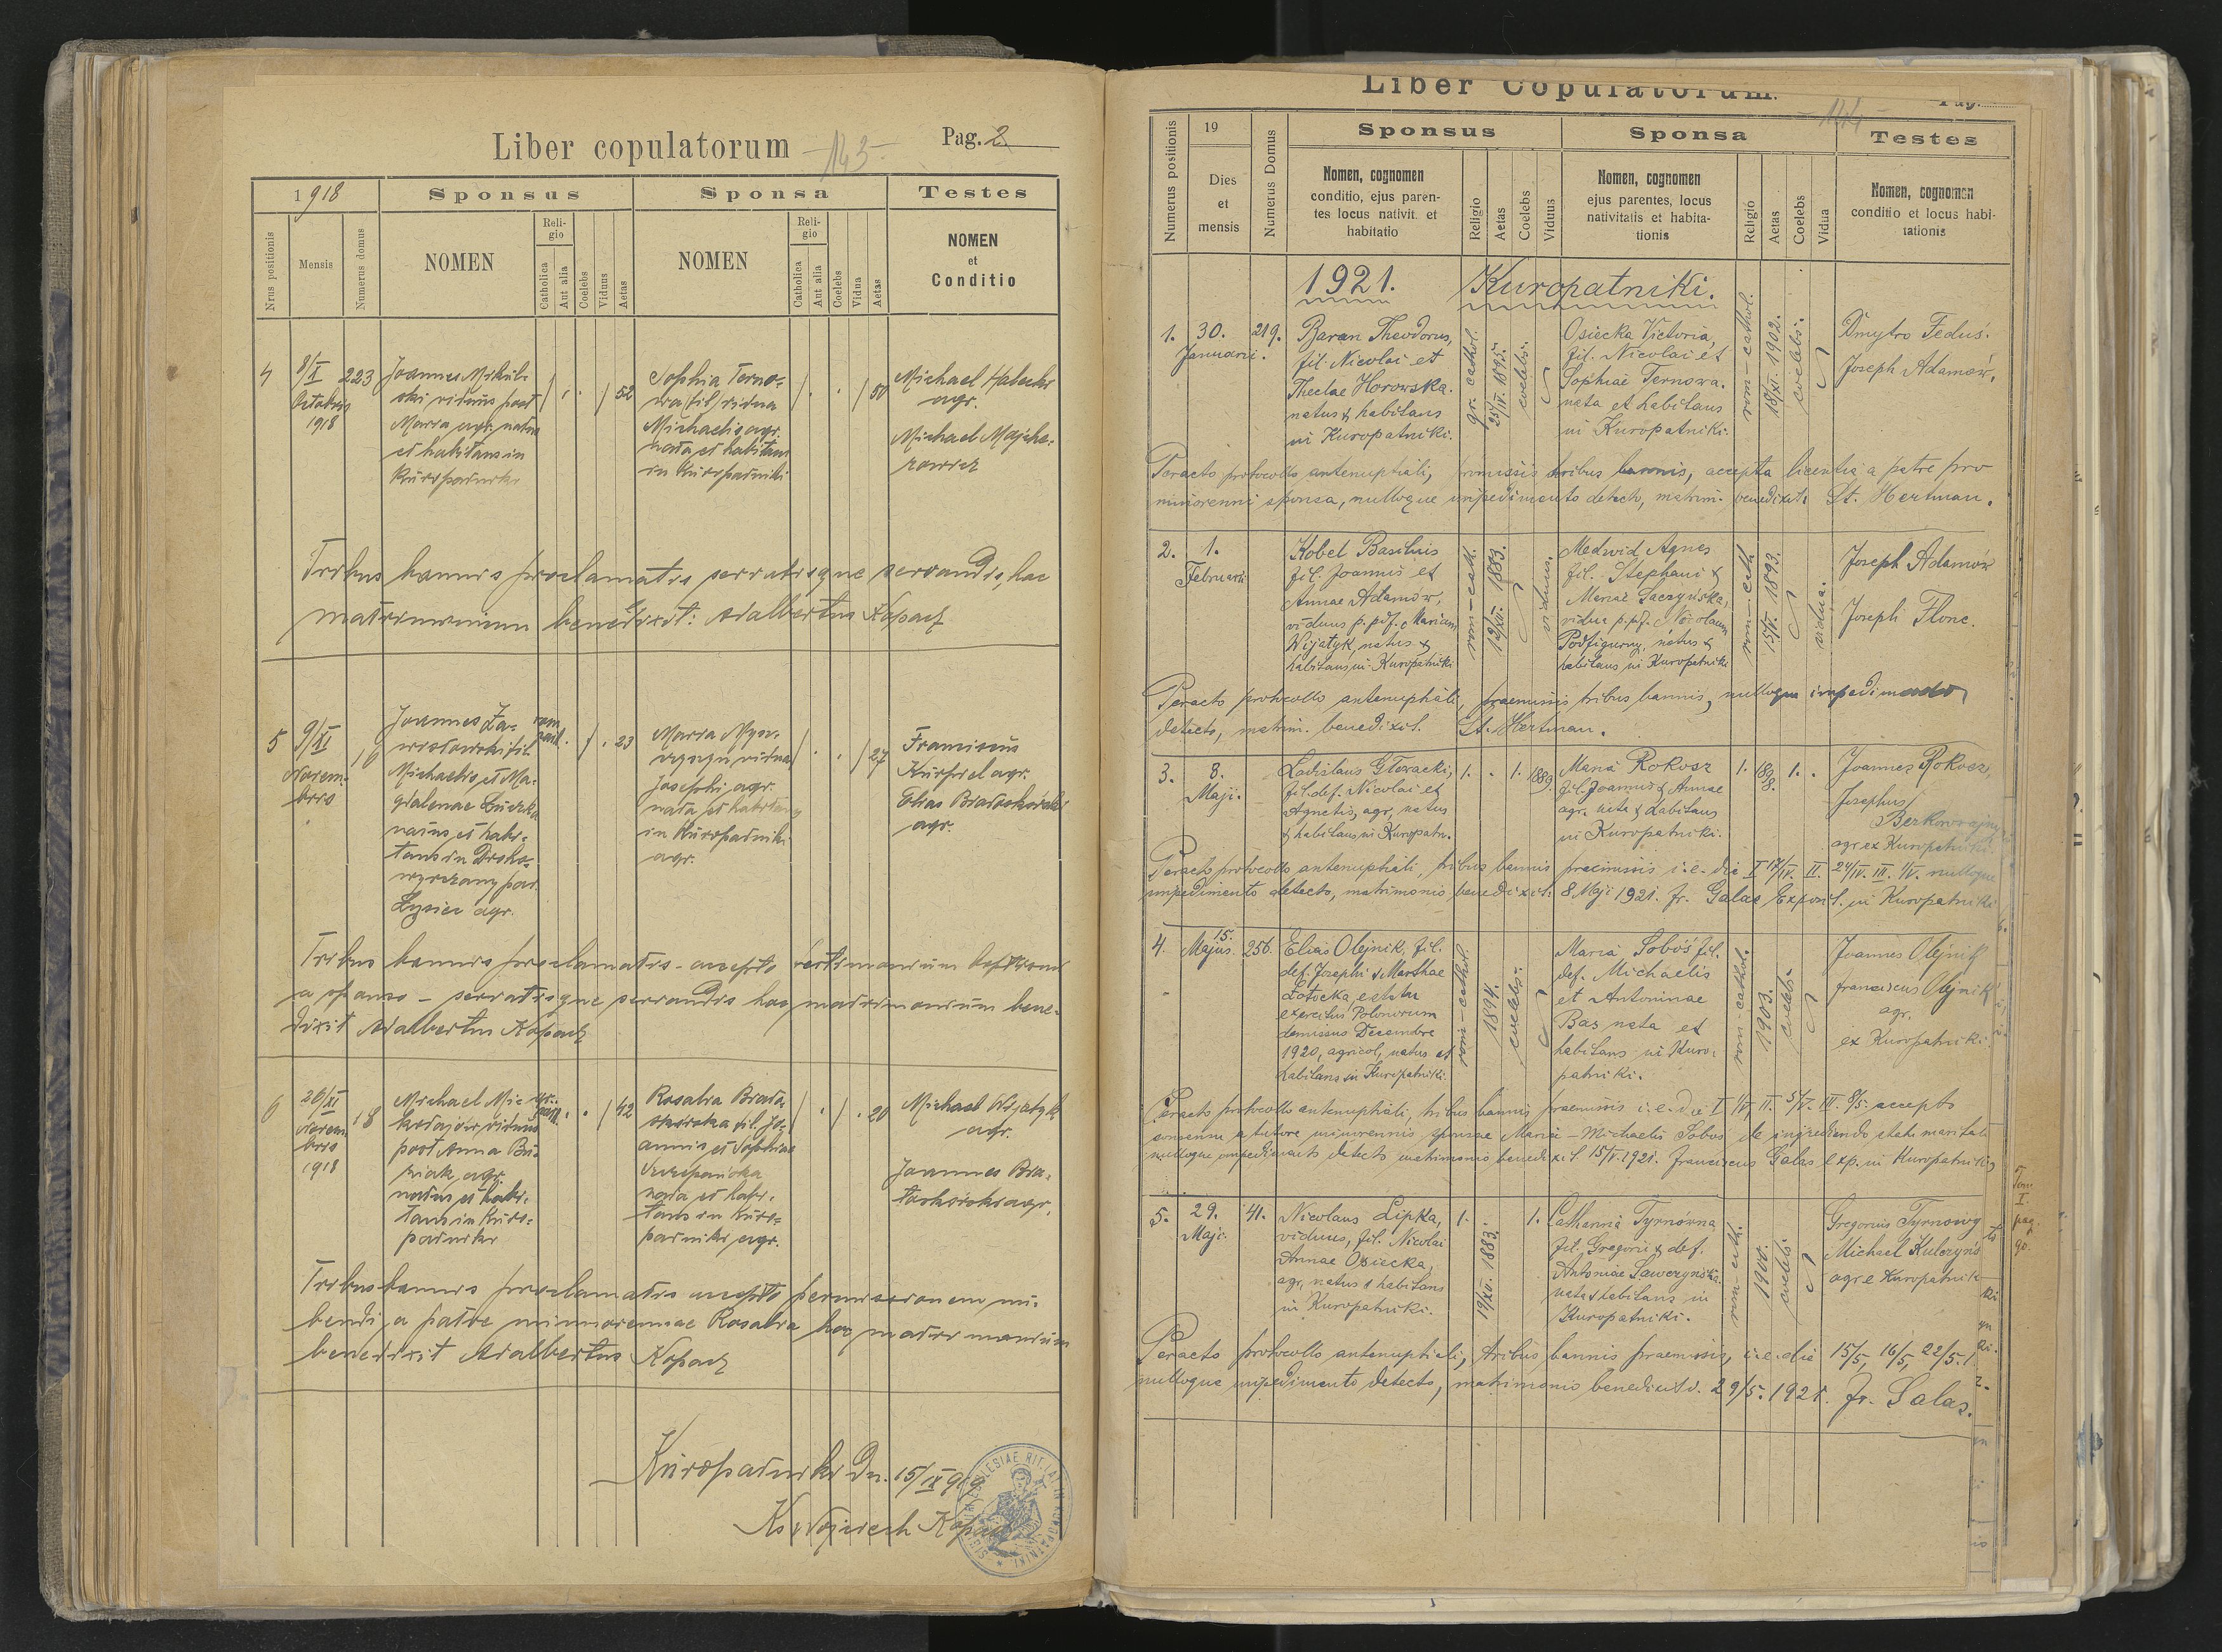 Liber copulatorum
143
Pag. 2
1918
Sponsus
Sponsa
Testes
Nrus positionis
Mensis
Numerus domus
NOMEN
Reli-
gio
Catholica
Aut alia
Coelebs
Viduus
Aetas
NOMEN
Reli-
gio
Catholica
Aut alia
Coelebs
Vidua
Aetas
NOMEN
et
Conditio
4
8/X
Octobris
1918
223
Joannes
ski viduus post
Maria agr. natus
et habitans in
Kuropatniki
52
Sophia Terno-
wa fil. vidua
Michaelis agr.
nata et habitans
in Kuropatniki
50
Michael
agr.
Michael Majche-
rowicz
Tribus bannis proclamatis servatisque servandis, hac
matrimonium benedixit: Adalbertus Kopacz
5
9/XI
Novem-
bris
16
Joannes Za-
wisławski fil.
Michaelis et Ma-
gdalenae
natus et habi-
tans in Droho-
wyczany par.
Łysiec agr.
23
Maria
vidua
Josephi agr.
nata et habitans
in Kuropatniki
agr.
27
Franciscus
Kurpiel agr.
Elias
agr.
Tribus bannis proclamatis - accepto testimonium baptismi
a sponso - servatisque servandis hoc matrimonium bene-
dixit Adalbertus Kopacz
6
20/XI
Novem-
bris
1918
18
Michael Mic-
viduus
post Anna Bu-
niak agr.
natus et habi-
tans in Kuro-
patniki
42
Rosalia Brata-
fil. Jo-
annis et Sophiae
Szczepańska
nata et habi-
tans in Kuro-
patniki agr.
20
Michael Wijatyk
agr.
Joannes Bra-
agr.
Tribus bannis proclamatis accepto permissionem nu-
bendi a patre minorennae Rosalia hoc matrimonium
benedixit Adalbertus Kopacz
Kuropatniki Dn. 15/IX 919
Ks Wojciech Kopacz
Liber Copulatorum.
Pag.
144
Numerus positionis
19
Dies
et
mensis
Numerus Domus
Sponsus
Nomen, cognomen
conditio, ejus paren-
tes locus nativit. et
habitatio
Religio
Aetas
Coelebs
Viduus
Sponsa
Nomen, cognomen
ejus parentes, locus
nativitatis et habita-
tionis
Religio
Aetas
Coelebs
Vidua
Testes
Nomen, cognomen
conditio et locus habi-
tationis
1921.
Kuropatniki.
1.
30.
Januarii.
219.
Baran Theodorus,
fil. Nicolai et
Theclae Horowska.
natus & habitans
in Kuropatniki.
gr. cathol.
25/IV. 1895.
coelebs.
Osiecka Victoria,
fil. Nicolai et
Sophiae Ternowa.
nata et habitans
in Kuropatniki.
rom-cathol.
18/XII. 1902.
coelebs.
Dmytro Feduś.
Joseph Adamów.
Peracto protocollo antenuptiali, promissis tribus bannis, accepta licentia a patre pro
minorenni sponsa, nulloque impedimento detecto, matrim. benedixit. St. Hertman.
2.
1.
Februarii
Kobel Basilius
fil. Joannis et
Annae Adamów,
viduus p. pdf. Mariam
Wijatyk, natus &
habitans in Kuropatniki
rom-cath.
12/XI. 1883.
viduus.
Medwid Agnes
fil. Stephani &
Mariae Łaczyńska,
vidua p. pdf. Nicolaum
Podfigurny, natus &
habitans in Kuropatniki
rom-cath
15/V. 1893.
vidua.
Joseph Adamów
Joseph Flonc.
Peracto protocollo antenuptiali, praemissis tribus bannis, nulloque impedimento
detecto, matrim. benedixit. St. Hertman.
3.
8.
Maji.
Ladislaus Głowacki,
fil. def. Nicolai et
Agnetis, agr, natus
& habitans in Kuropatn.
1.
1.
1889.
Maria Rokosz
fil. Joannis & Annae
agr. nata & habitans
in Kuropatniki.
1.
1898.
1.
Joannes Rokosz,
Josephus
Berkoworajny
agr ex Kuropatniki.
Peracto protocollo antenuptiali, tribus bannis praemissis i. e. die I 17/IV. II. 24/IV. III. 1/V. nulloque
impedimento detecto, matrimonio benedixit. 8 Maji 1921. Fr. Galas Exposit. in Kuropatniki
4.
15.
Majus.
256.
Elias Olejnik, fil.
def. Josephi & Marthae
Łotocka, e statu
exercitus Polonorum
demissus Decembre
1920, agricol, natus et
habitans in Kuropatniki.
rom-cathol.
1894.
coelebs.
Maria Soboś fil.
def. Michaelis
et Antoninae
Bas nata et
habitans in Kuro-
patniki.
rom-cathol.
1903.
coelebs.
Joannes Olejnik
Franciscus Olejnik
agr.
ex Kuropatniki.
Peracto protocollo antenuptiali, tribus bannis praemissis i. e. die I 1/V. II. 5/V. III. 8/5. accepto
consensu a tutore minorennis sponsae Maria - Michaelis Sobos de ingrediendo statu maritali
nulloque impedimento detecto matrimonio benedixit. 15/V. 1921. Franciscus Galas exp. in Kuropatniki
5.
29.
Maji.
41.
Nicolaus Lipka,
viduus, fil. Nicolai
Annae Osiecka,
agr, natus & habitans
in Kuropatniki.
1.
19/XII. 1883.
1.
Catharina Tyrnówna
fil. Gregorii & def.
Antoniae Ławczyńska
nata & habitans in
Kuropatniki.
rom-cath.
1900.
coelebs.
Gregorius Tyrnowy
Michael Kulczyńs
agr e Kuropatnik
Peracto protocollo antenuptiali, tribus bannis praemissis, i. e. die 15/5, 16/5, 22/5. 1
nulloque impedimento detecto, matrimonio benedixit d. 29/5. 1921. Fr. Galas.
Tom
I.
pag.
90.